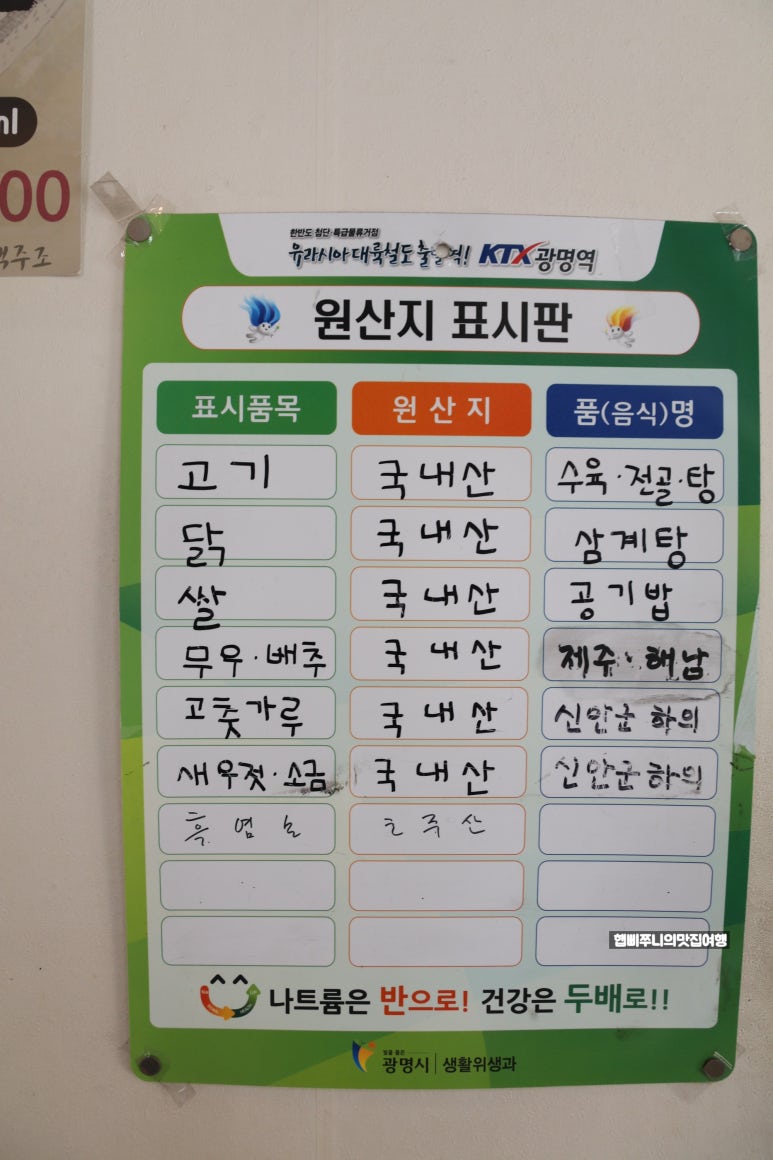 ml
00
맥주조
한반도 첨단·특급물류거점
유라시아 대륙철도 출발역! KTX 광명역
원산지 표시판
표시품목 원산지 품(음식)명
고기 국내산 수육·전골·탕
닭 국내산 삼계탕
쌀 국내산 공기밥
무우·배추 국내산 제주·해남
고춧가루 국내산 신안군 하의
새우젓·소금 국내산 신안군 하의
흑염소 호주산
햅삐쭈니의맛집여행
나트륨은 반으로! 건강은 두배로!!
광명시 생활위생과